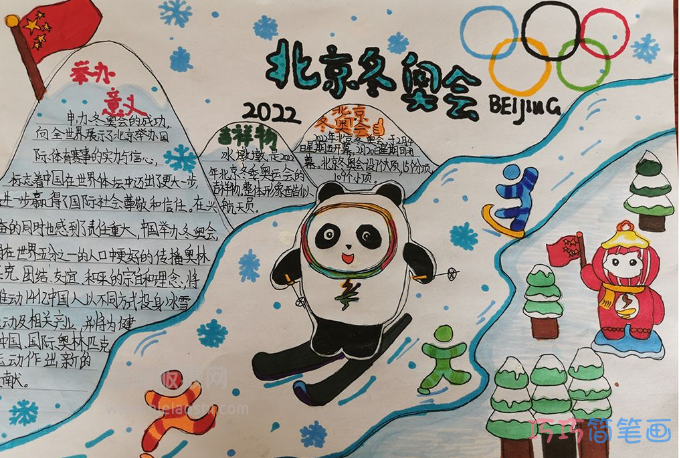 北京冬奥会
BEIJING
2022
举办
意义
申办冬奥会的成功,
向全世界展示了北京举办国
际体育赛事的实力片信心,
标志着中国在世界体坛中迈出了更大一步
进一步赢得了国际社会尊敬和信任。在
的同时也感到了责任重大,中国举办冬奥会,
在世界五分之一的人口中更好的传播奥林
匹克,团结、友谊、和平的宗旨和理念,将
推动14亿中国人以不同方式投身冰雪
运动及相关产业,并将为健
中国,国际奥林匹克
运动作出新的
贡献。
吉祥物
冰墩墩,是202
年北京冬奥会的
吉祥物,整体形象酷似
航天员。
北京
冬奥会
北京冬奥会设7个大项,15个分项,
109个小项。
巧巧简笔画